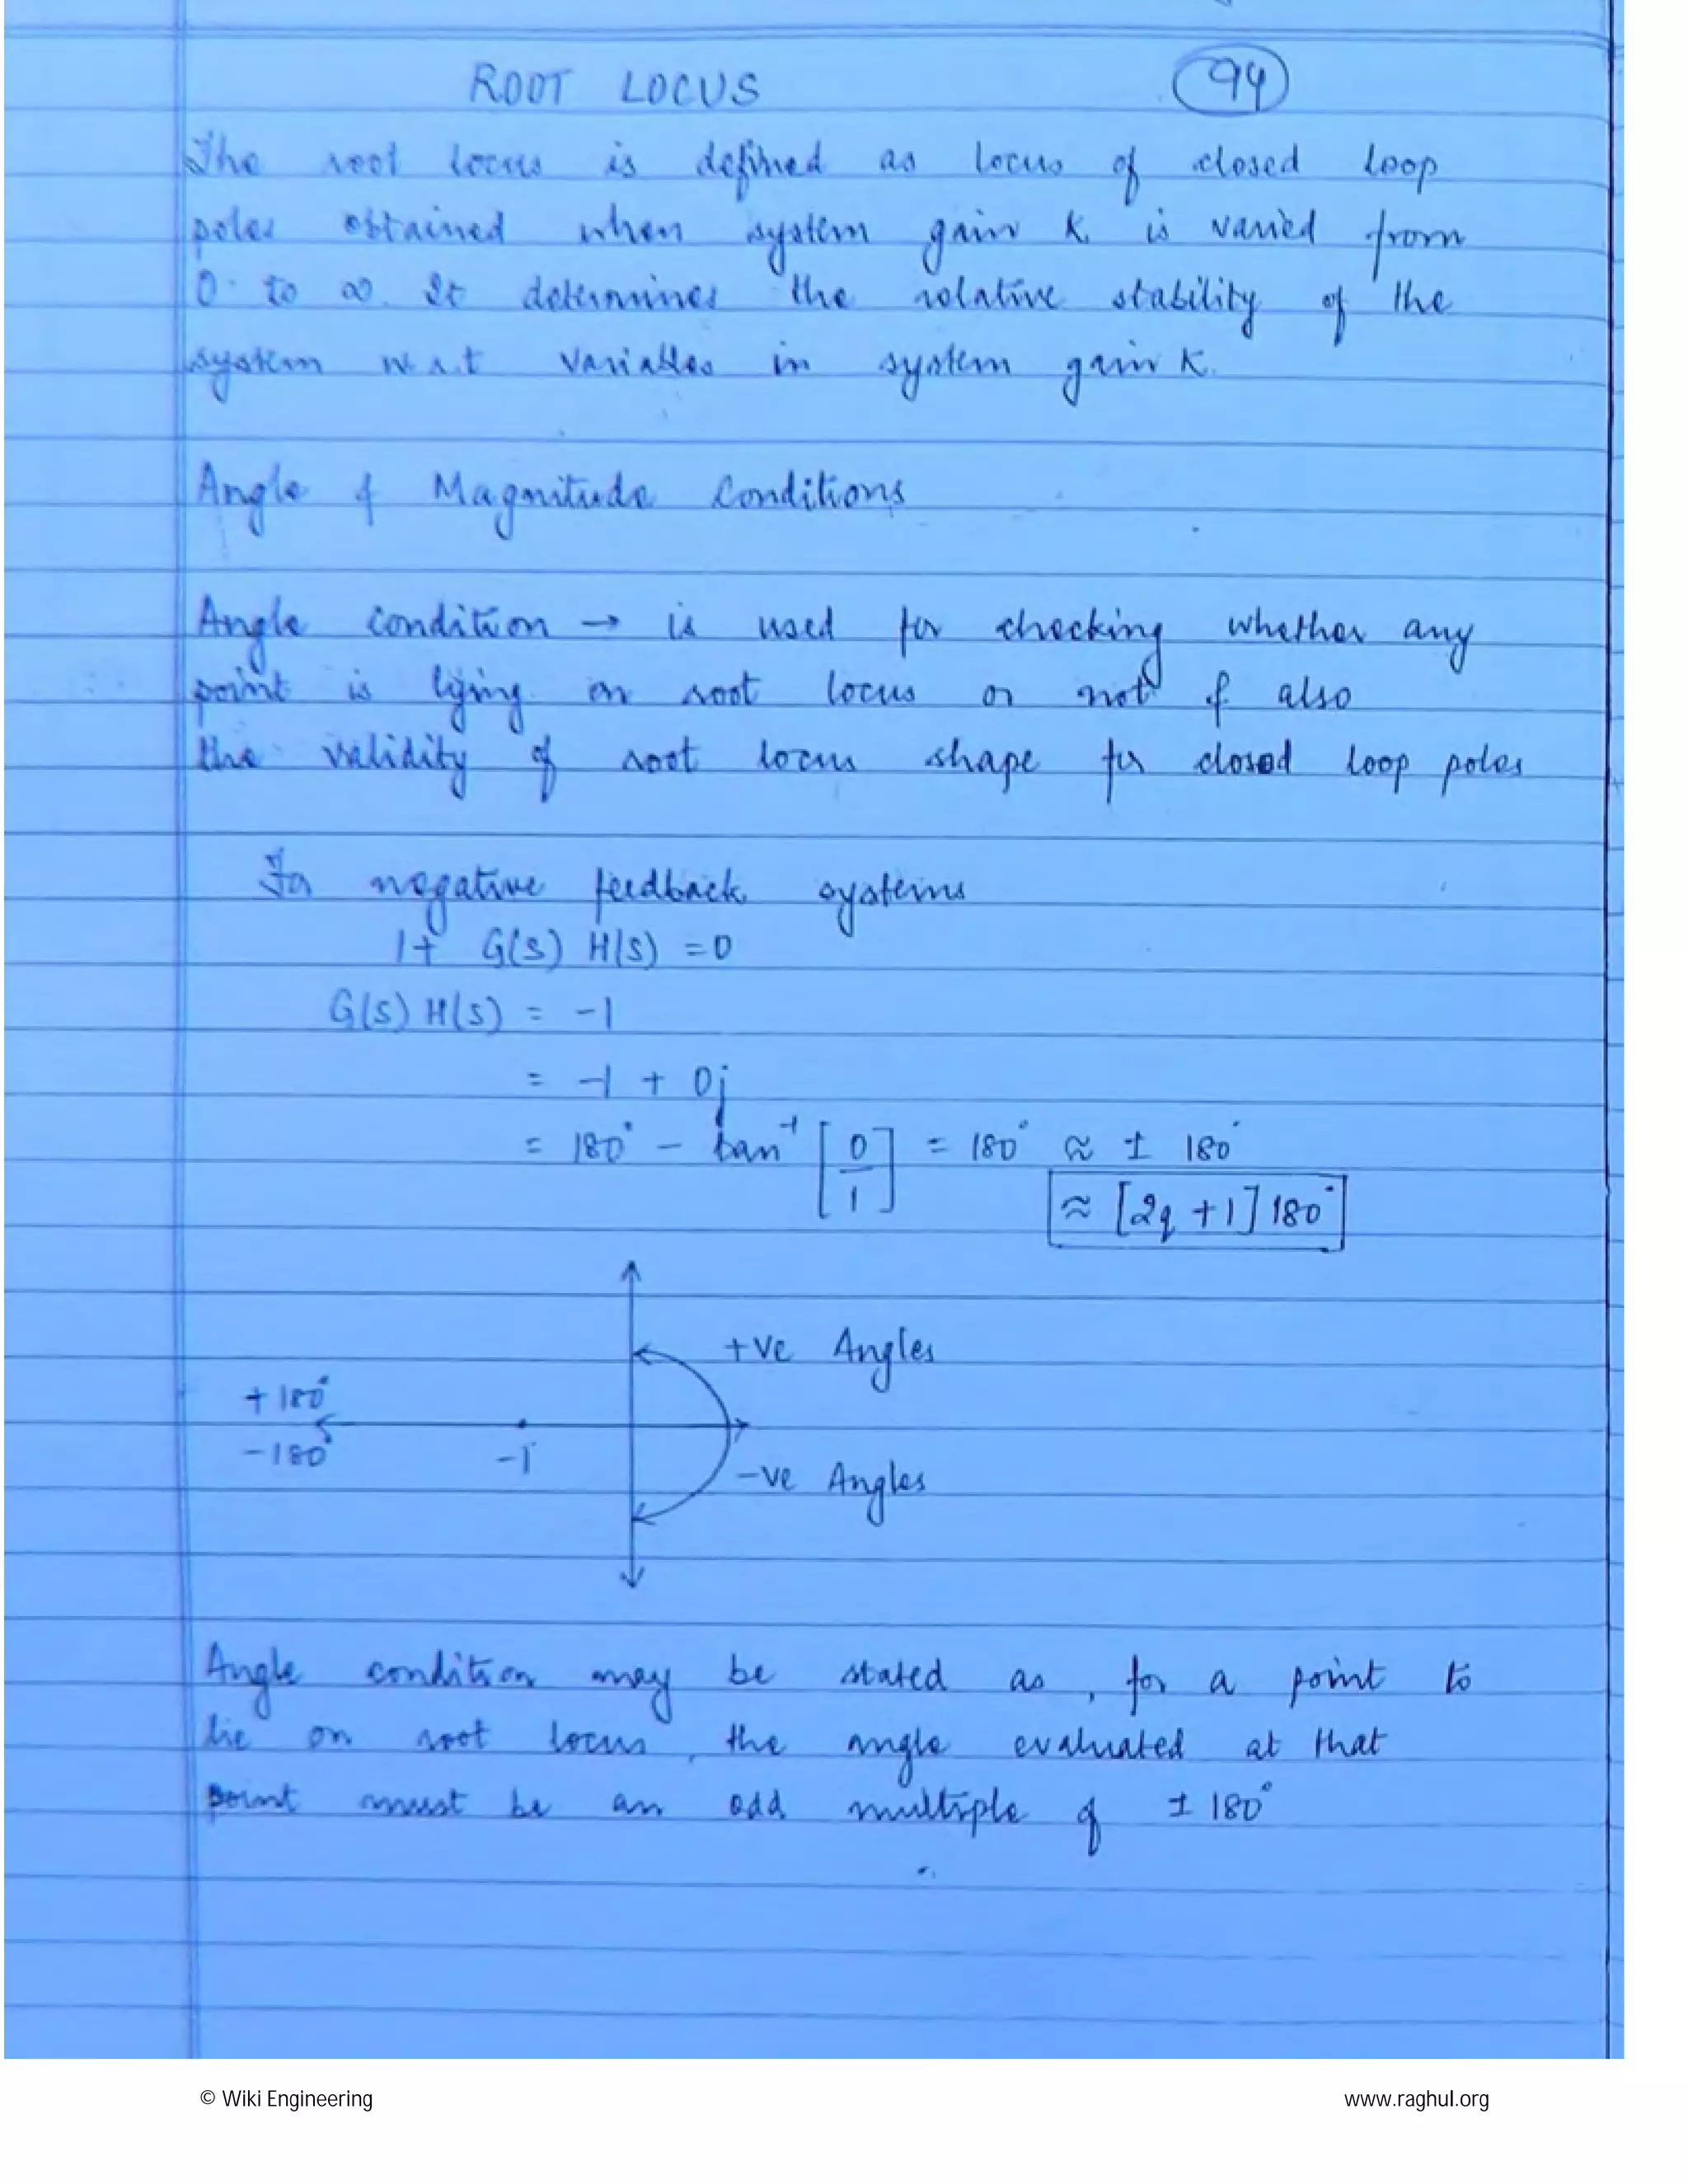 ROOT LOCUS 94
The root locus is defined as locus of closed loop
poles obtained when system gain K is varied from
0 to ∞. It determines the relative stability of the
system w.r.t variables in system gain K.
Angle & Magnitude Conditions
Angle condition → is used for checking whether any
point is lying on root locus or not & also
the validity of root locus shape for closed loop poles
For negative feedback systems
1+ G(s) H(s) = 0
G(s) H(s) = -1
= -1 + 0j
= 180° - tan⁻¹ [0/1] = 180° ≈ ± 180°
≈ [2q + 1] 180°
+ve Angles
+180°
-180°
-1
-ve Angles
Angle condition may be stated as, for a point to
lie on root locus, the angle evaluated at that
point must be an odd multiple of ± 180°
© Wiki Engineering www.raghul.org